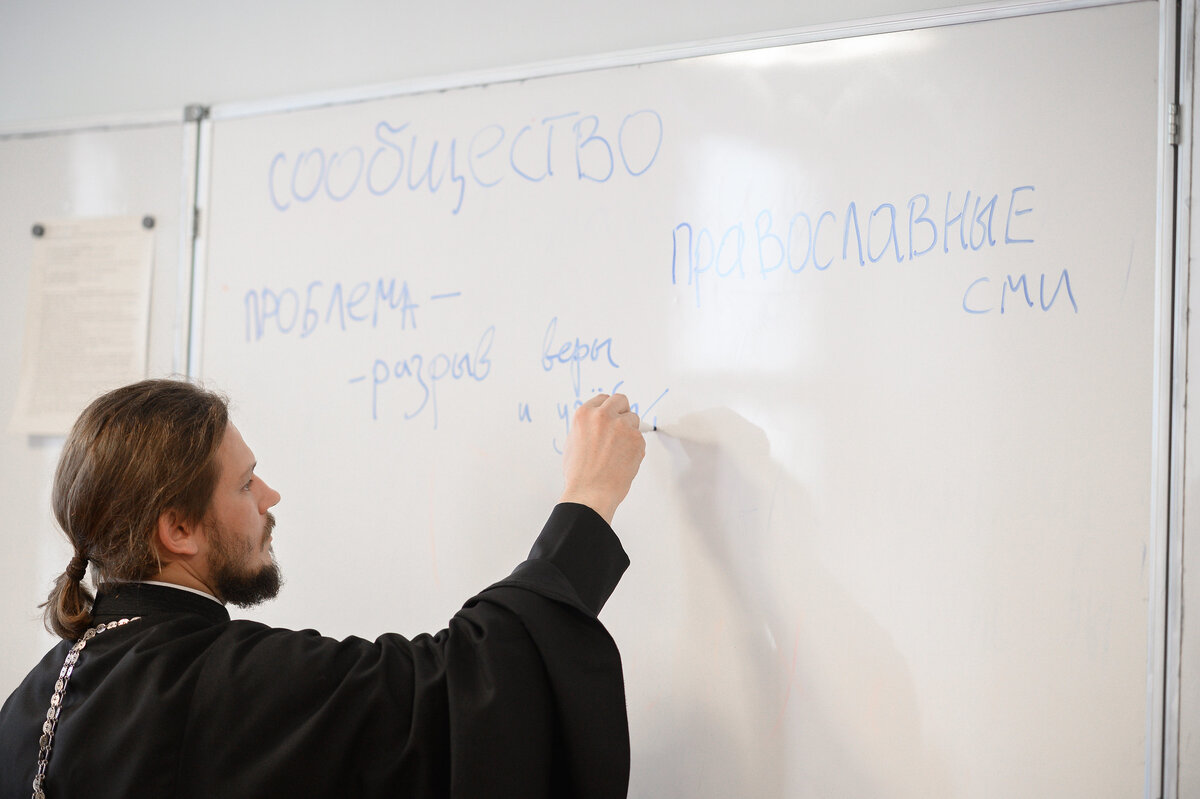 СООбЩеСТВО
ПРАВОСЛАВНЫЕ
СМИ
ПРОБЛеМА –
- разрыв веры
и